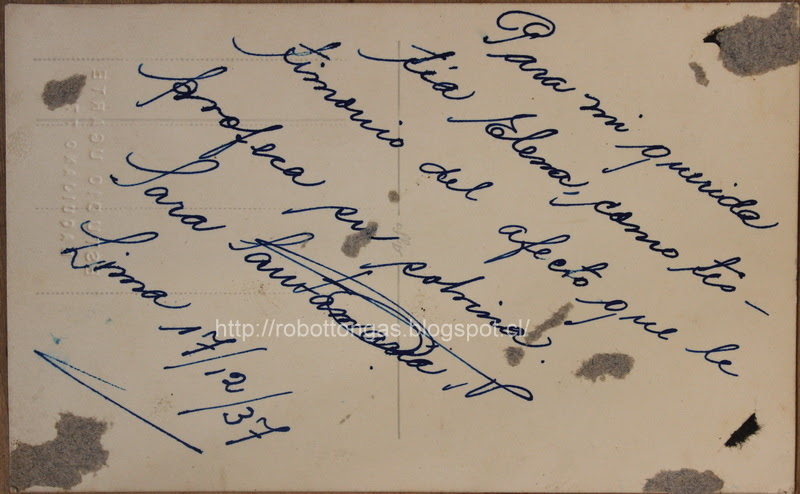 Para mi querida
tía Elena, como tes-
timonio del afecto que le
profesa su sobrina.
Sara Santamaría
Lima 17/12/37
http://robottongas.blogspot.cl/